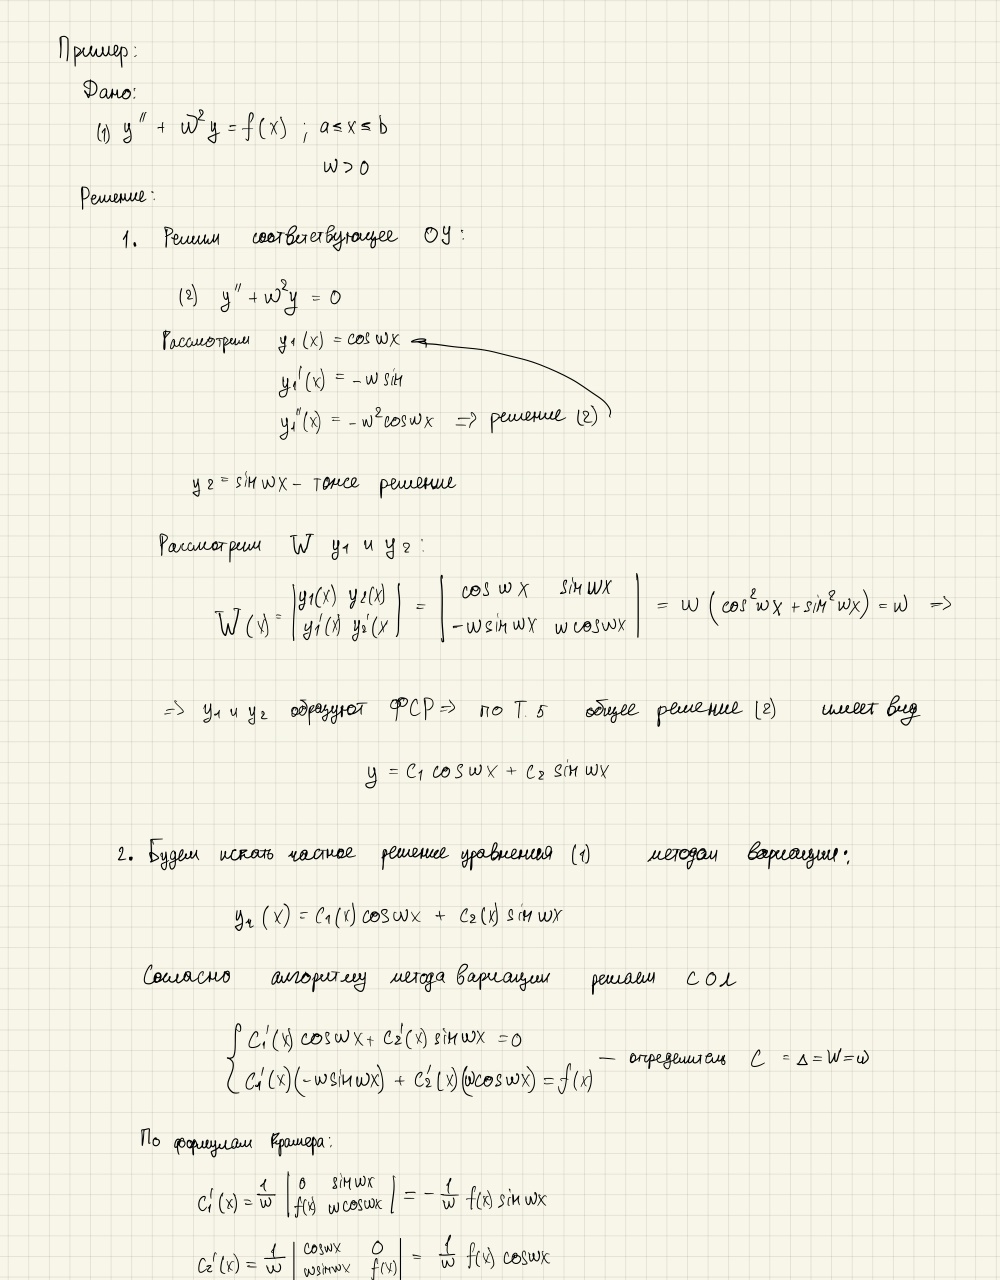 Пример:
Дано:
(1) y'' + w²y = f(x) ; a ≤ x ≤ b
w > 0
Решение:
1. Решим соответствующее ОУ:
(2) y'' + w²y = 0
Рассмотрим y₁(x) = cos wx
y₁'(x) = -w sin
y₁''(x) = -w² cos wx => решение (2)
y₂ = sin wx - тоже решение
Рассмотрим W y₁ и y₂:
W(x) = |y₁(x) y₂(x); y₁'(x) y₂'(x| = |cos wx sin wx; -w sin wx w cos wx| = w (cos² wx + sin² wx) = w =>
=> y₁ и y₂ образуют ФСР => по Т.5 общее решение (2) имеет вид
y = C₁ cos wx + C₂ sin wx
2. Будем искать частное решение уравнения (1) методом вариации:
yч(x) = C₁(x) cos wx + C₂(x) sin wx
Согласно алгоритму метода вариации решаем СОЛ
{ C₁'(x) cos wx + C₂'(x) sin wx = 0
C₁'(x)(-w sin wx) + C₂'(x)(w cos wx) = f(x) — определитель С = Δ = W = w
По формулам Крамера:
C₁'(x) = 1/w |0 sin wx; f(x) w cos wx| = - 1/w f(x) sin wx
C₂'(x) = 1/w |cos wx 0; w sin wx f(x)| = 1/w f(x) cos wx